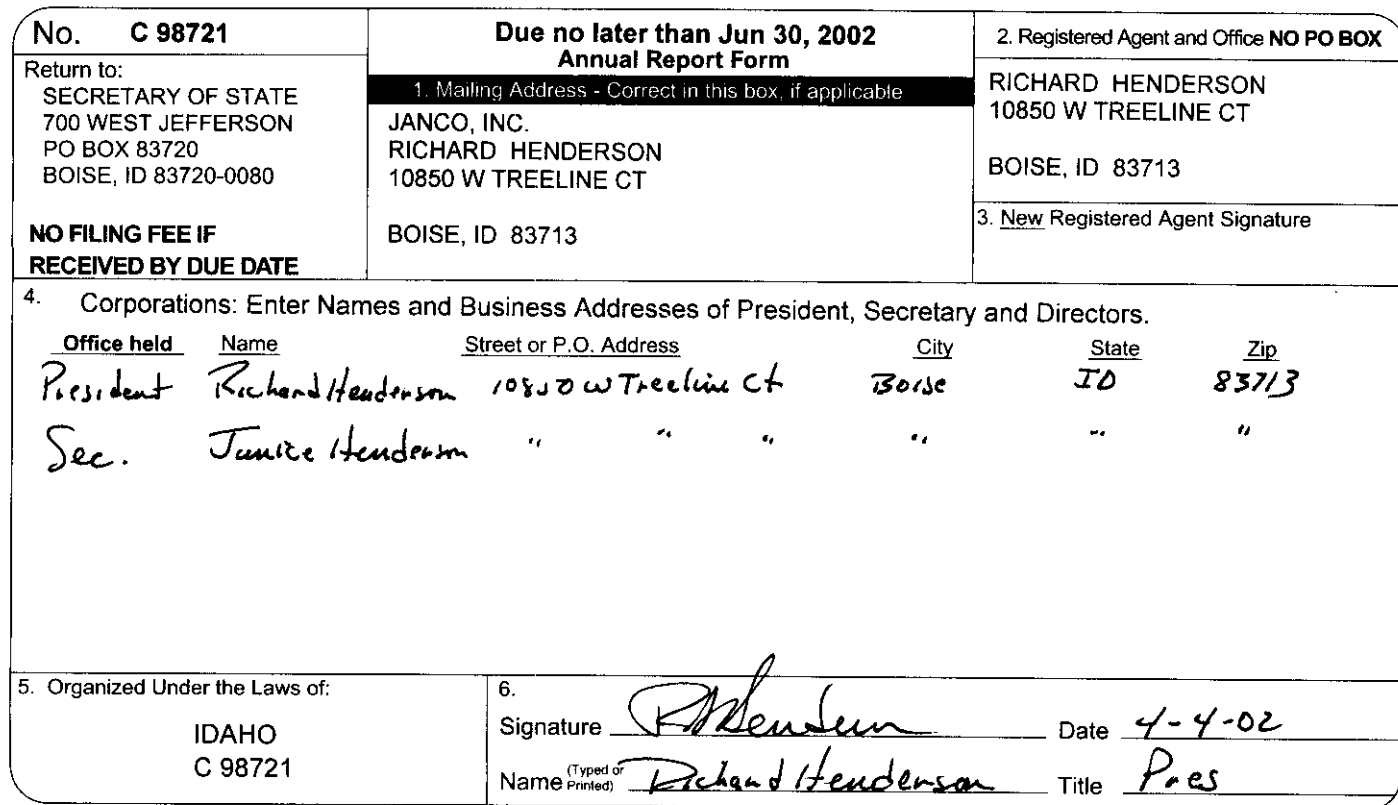 No. C 98721
Return to:
SECRETARY OF STATE
700 WEST JEFFERSON
PO BOX 83720
BOISE, ID 83720-0080
NO FILING FEE IF
RECEIVED BY DUE DATE
Due no later than Jun 30, 2002
Annual Report Form
1. Mailing Address - Correct in this box, if applicable
JANCO, INC.
RICHARD HENDERSON
10850 W TREELINE CT
BOISE, ID 83713
2. Registered Agent and Office NO PO BOX
RICHARD HENDERSON
10850 W TREELINE CT
BOISE, ID 83713
3. New Registered Agent Signature
4. Corporations: Enter Names and Business Addresses of President, Secretary and Directors.
Office held Name Street or P.O. Address City State Zip
President Richard Henderson 10850 W Treeline Ct Boise ID 83713
Sec. Janice Henderson " " " " " "
5. Organized Under the Laws of:
IDAHO
C 98721
6.
Signature RHenderson Date 4-4-02
Name (Typed or Printed) Richard Henderson Title Pres